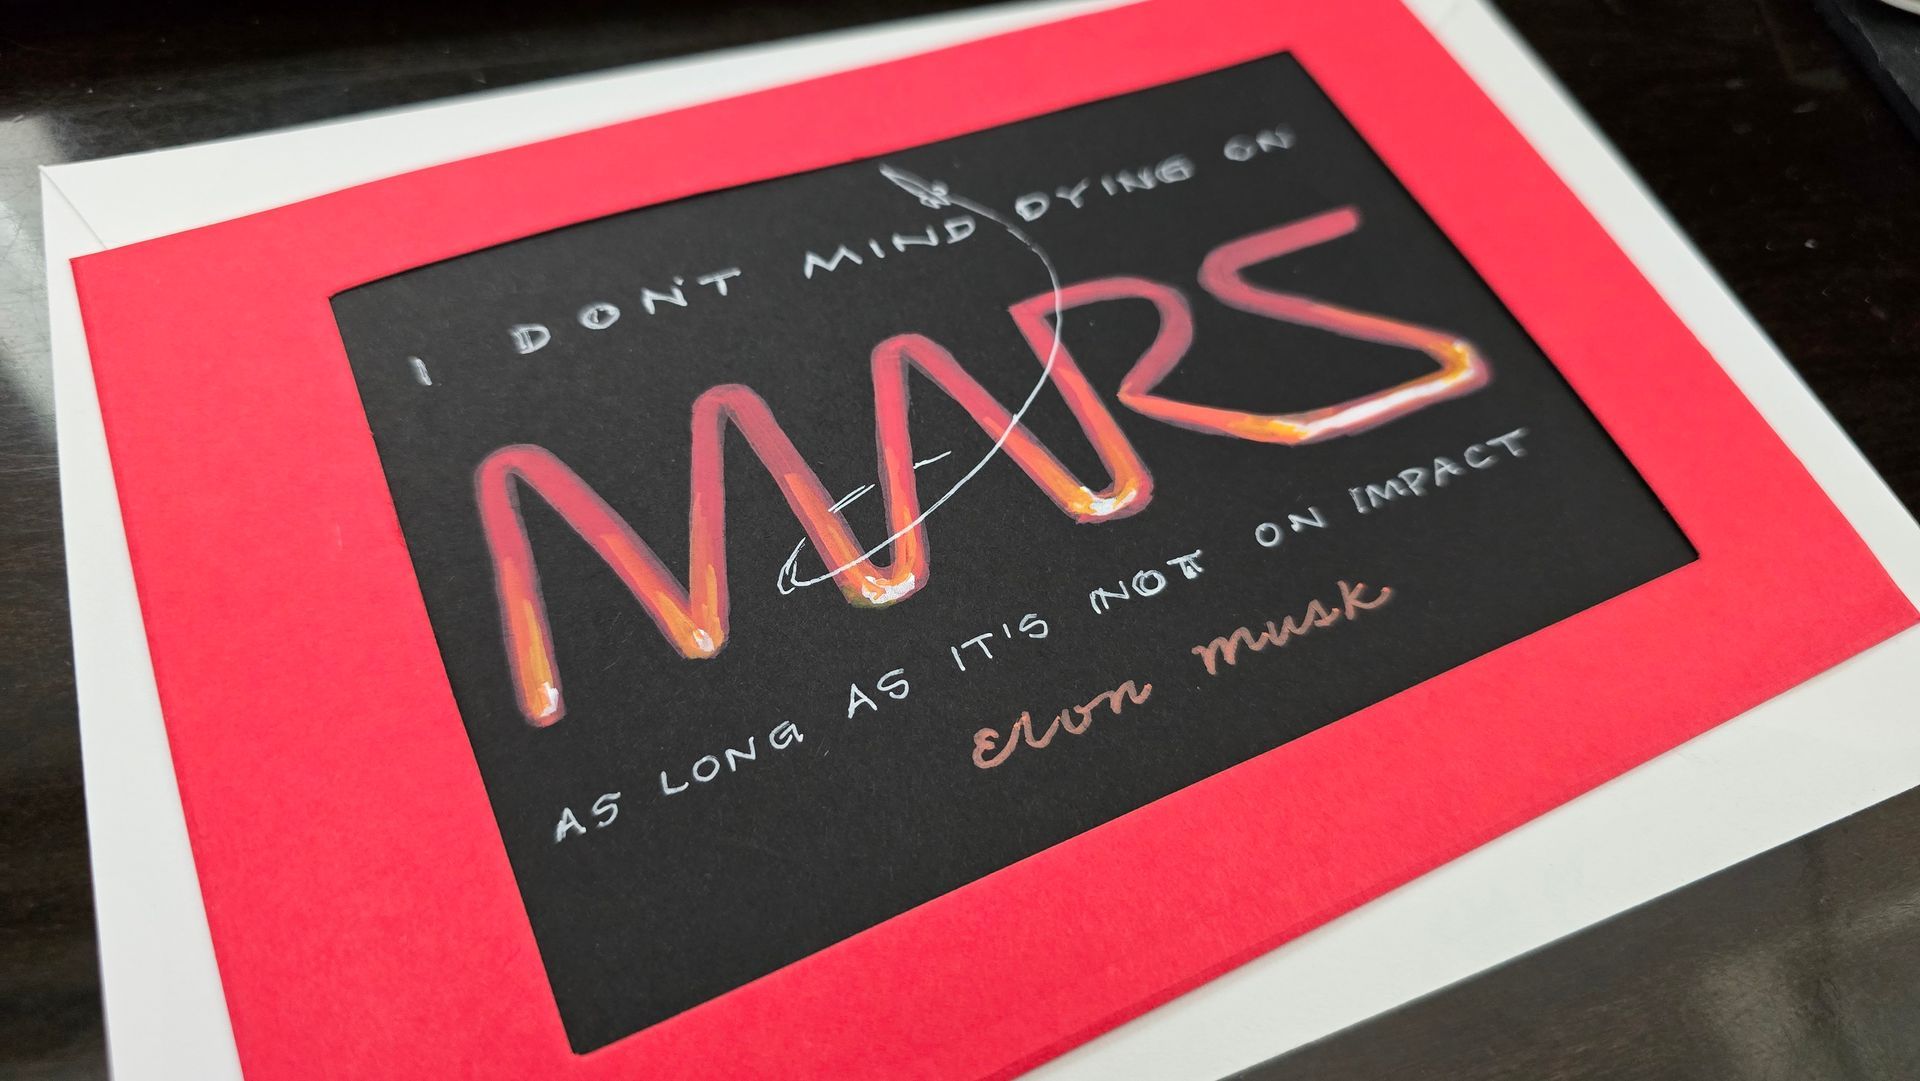 I DON'T MIND DYING ON
MARS
AS LONG AS IT'S NOT ON IMPACT
Elon Musk